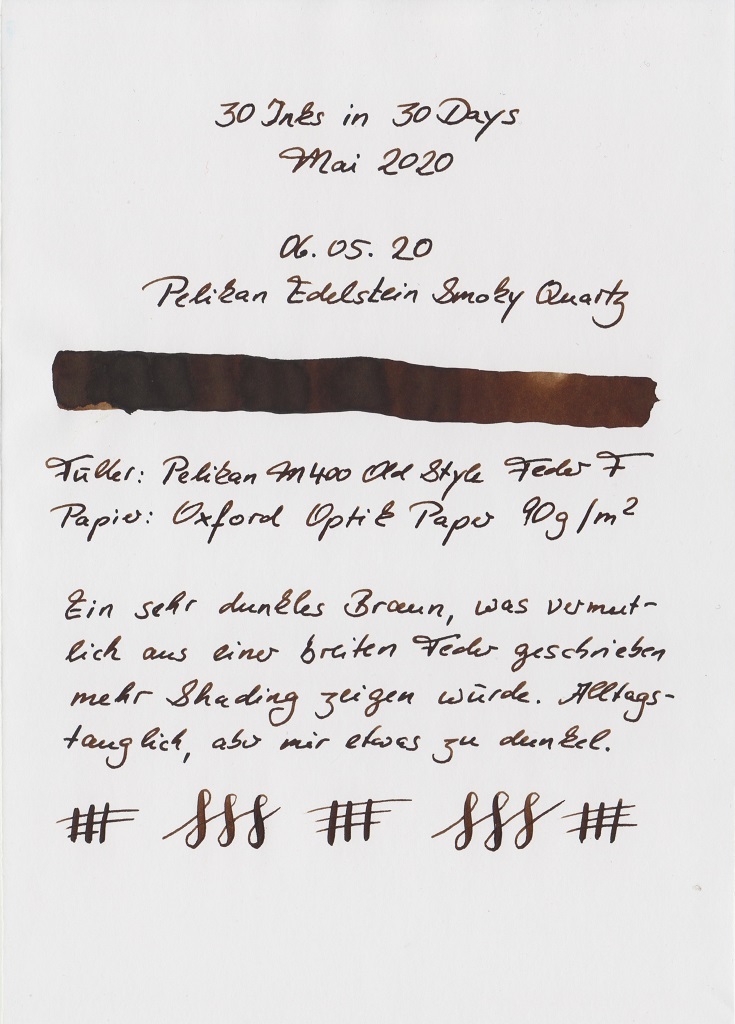 30 Inks in 30 Days
Mai 2020
06.05.20
Pelikan Edelstein Smoky Quartz
Füller: Pelikan M400 Old Style Feder F
Papier: Oxford Optik Paper 90g/m²
Ein sehr dunkles Braun, was vermut-
lich aus einer breiten Feder geschrieben
mehr Shading zeigen würde. Alltags-
tauglich, aber mir etwas zu dunkel.